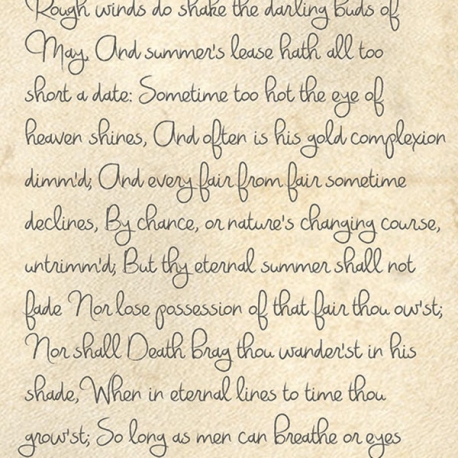 Rough winds do shake the darling buds of
May, And summer's lease hath all too
short a date: Sometime too hot the eye of
heaven shines, And often is his gold complexion
dimm'd; And every fair from fair sometime
declines, By chance, or nature's changing course,
untrimm'd; But thy eternal summer shall not
fade Nor lose possession of that fair thou ow'st;
Nor shall Death brag thou wander'st in his
shade, When in eternal lines to time thou
grow'st; So long as men can breathe or eyes